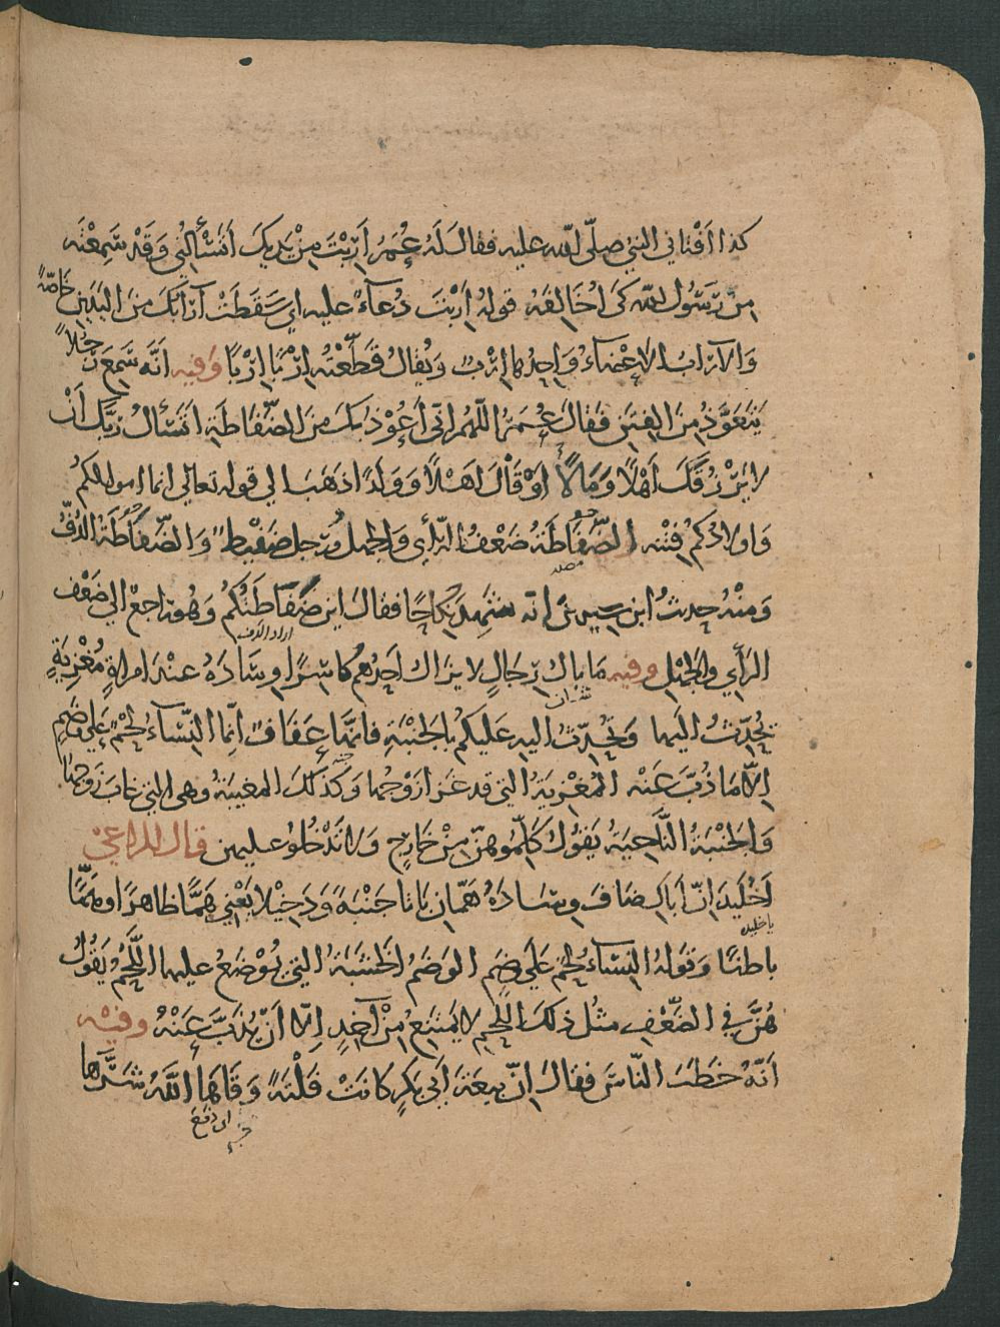 كذا افْتاني النبي صلّى الله عليه فقالَ لَهُ عُمَرُ اَرِبْتَ مِنْ يَدَيكَ اَتَسْأَلُنِي وَقَدْ سَمِعْتَه
مِنْ رَسُول الله كَى اُخَالِفَهُ قولهُ اَرِبْتَ دُعآءٌ عليه اي سَقَطَتْ آرَابُكَ مِنَ اليَدَينِ خَاصّةً
وَالآرَابُ الاعْضَآءُ وَاحِدُهَا اِرْبٌ وَيُقالُ قَطَّعْتُهُ اِرْبًا اِرْبًا وَفيه اَنَّه سَمِعَ رَجُلاً
يَتَعَوَّذُ مِنَ الفِتَنِ فَقالَ عُمَرُ اللّهُمَ اِنّى اَعُوْذُ بِكَ مِنَ الضَّفَاطَةِ اَتَسْألُ رَبَّكَ اَنْ
لا يَرْزُقَكَ اَهْلًا وَمَالًا اَوْ قَالَ اَهْلًا وَوَلَدًا ذَهَبَ الي قوله تعالى انما اموالكم
وَاولادُكم فتْنه الضَّفَاطَةُ ضَعْفُ الرَّأي وَالجهل وَرَجل ضَفيْطٌ وَالضَّفَاطَةُ الدُّفُّ
وَمِنْهُ حديثُ ابن سيرينَ انّه شَهِدَ نِكَاحًا فقالَ اين ضَفَاطَتُكُمْ وَهُو رَاجعْ الي ضَعْف
اراد الدف
الرَّأيِ وَالجَهْلِ وفيه مَا بالُ رِجَالٍ لا يزالُ اَحَدُهُم كاسِرًا وِسَادَهُ عِنْدَ امراةٍ مُغْزِيَةٍ
يَحَدّثُ اليها وَتحَدّثُ اليه عَليكُمْ بالجَنْبَةِ فانّها عَفَافٌ اِنّما النِّسَآءُ لَحْمٌ علي وَضَمٍ
اِلّا مَا ذُبَّ عَنْه المُغْزِيَةُ التى قد غَزَا زَوْجُها وَكَذلكَ المغيبَةُ وهى التي غابَ زَوجها
وَالجَنْبَةُ النَّاحِيَةُ يَقُولُ كَلِّمُوهُنّ مِنْ خَارِجٍ وَلا تَدْخُلُوْا عليهن قال الراعي
اَخُلَيدَ اِنّ اَبَاكِ ضَافَ وِسَادَهُ هَمّانِ بَاتَا جَنْبَةً وَدَخِيْلا يَعْنِي هَمًّا ظاهرًا وهَمًّا
يا خليده
باطنًا وَقَوله النِّسَآءُ لَحْمٌ عَلَي وضَمٍ الوَضَمُ الخَشَبَةُ التي يُوْضَعُ عليها اللَّحْمُ يَقُولُ
هُنَّ فِي الضَّعْفِ مثْلُ ذلكَ اللحمِ لا يَمْتَنِعُ مِنْ اَحَدٍ اِلّا اَنْ يُذَبَّ عَنْهُ وفيْه
اَنّهُ خطَبَ النّاسَ فقالَ اِنّ بيعَةَ اَبي بَكرٍ كَانَتْ فَلْتَةً وَقَاهَا اللهُ شَرَّهَا
اى دفع